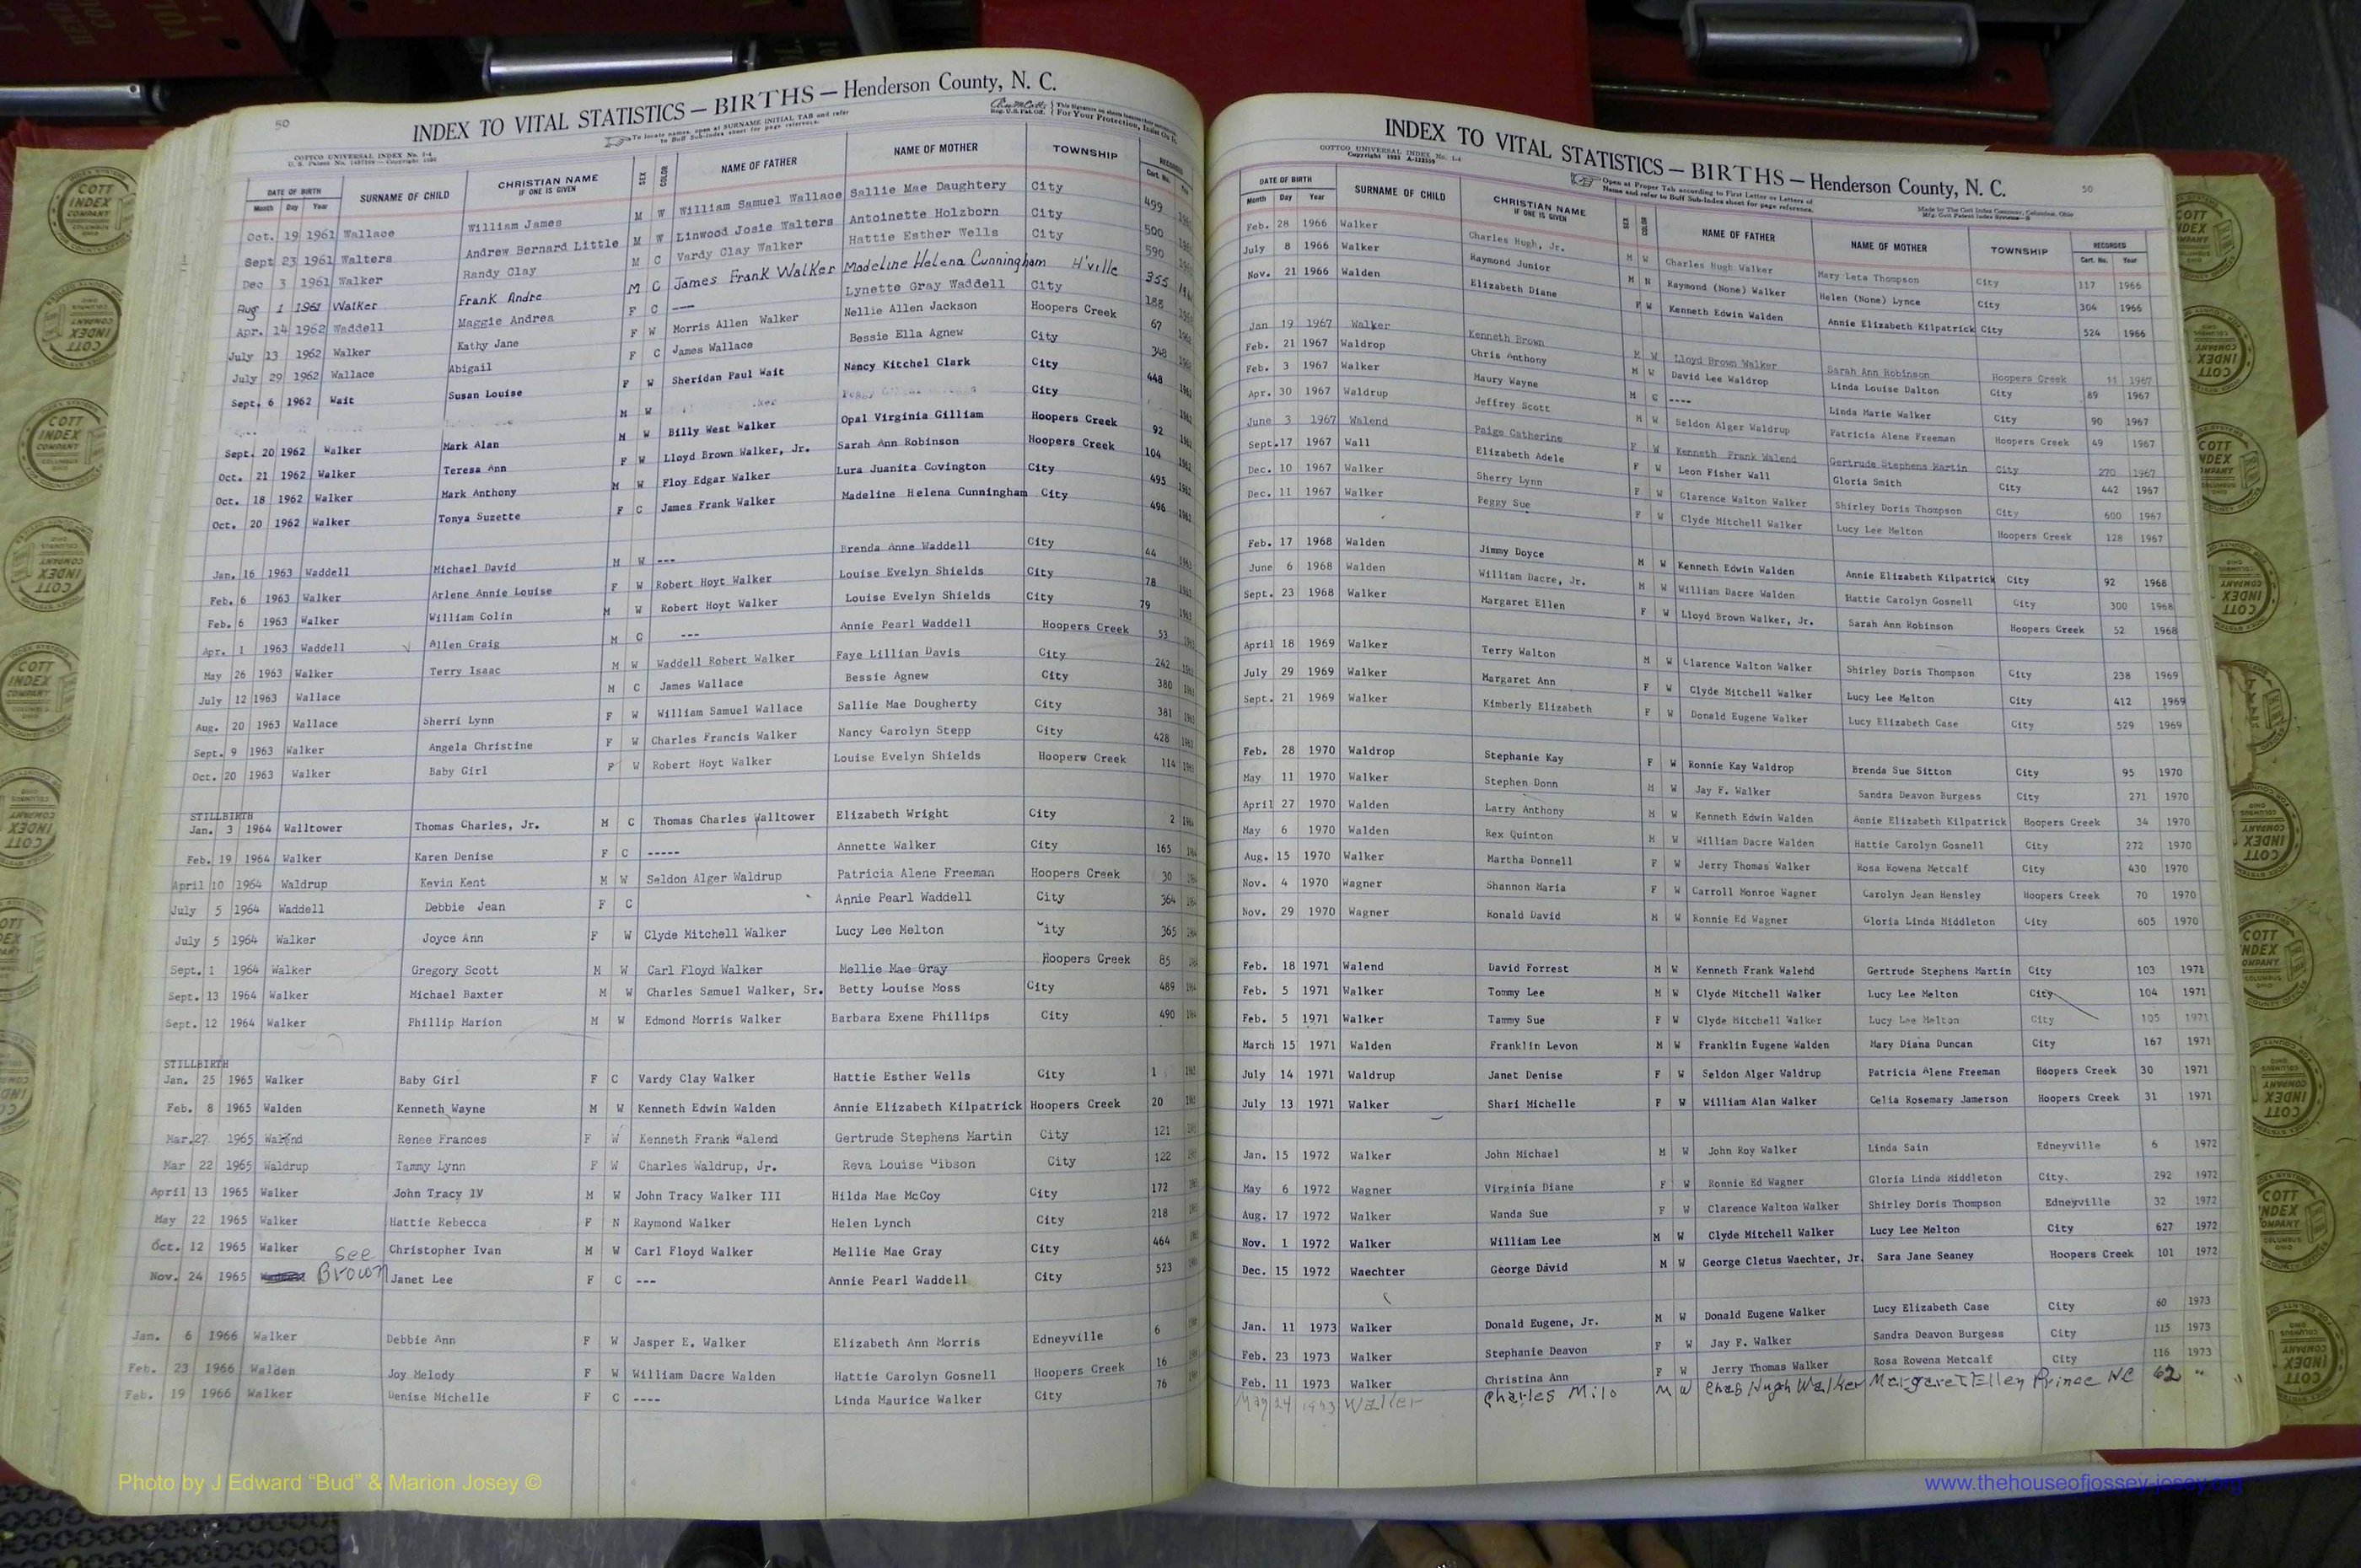 50
INDEX TO VITAL STATISTICS — BIRTHS — Henderson County, N. C.
COTTCO UNIVERSAL INDEX No. 1-4
To locate names, open at SURNAME INITIAL TAB and refer
to Buff Sub-Index sheet for page reference.
DATE OF BIRTH SURNAME OF CHILD CHRISTIAN NAME IF ONE IS GIVEN SEX COLOR NAME OF FATHER NAME OF MOTHER TOWNSHIP RECORDED
Month Day Year Cert. No.
Oct. 19 1961 Wallace William James M W William Samuel Wallace Sallie Mae Daughtery City 499
Sept 23 1961 Walters Andrew Bernard Little M W Linwood Josie Walters Antoinette Holzborn City 500
Dec 3 1961 Walker Randy Clay M C Vardy Clay Walker Hattie Esther Wells City 590
Aug 1 1961 Walker Frank Andre M C James Frank Walker Madeline Helena Cunningham H'ville 355
Apr. 14 1962 Waddell Maggie Andrea F C --- Lynette Gray Waddell City 188
July 13 1962 Walker Kathy Jane F W Morris Allen Walker Nellie Allen Jackson Hoopers Creek 67
July 29 1962 Wallace Abigail F C James Wallace Bessie Ella Agnew City 348
Sept. 6 1962 Wait Susan Louise F W Sheridan Paul Wait Nancy Kitchel Clark City 448
M W City
Sept. 20 1962 Walker Mark Alan M W Billy West Walker Opal Virginia Gilliam Hoopers Creek 92
Oct. 21 1962 Walker Teresa Ann F W Lloyd Brown Walker, Jr. Sarah Ann Robinson Hoopers Creek 104
Oct. 18 1962 Walker Mark Anthony M W Floy Edgar Walker Lura Juanita Covington City 495
Oct. 20 1962 Walker Tonya Suzette F C James Frank Walker Madeline Helena Cunningham City 496
Jan. 16 1963 Waddell Michael David M W --- Brenda Anne Waddell City 44
Feb. 6 1963 Walker Arlene Annie Louise F W Robert Hoyt Walker Louise Evelyn Shields City 78
Feb. 6 1963 Walker William Colin M W Robert Hoyt Walker Louise Evelyn Shields City 79
Apr. 1 1963 Waddell Allen Craig M C --- Annie Pearl Waddell Hoopers Creek 53
May 26 1963 Walker Terry Isaac M W Waddell Robert Walker Faye Lillian Davis City 242
July 12 1963 Wallace M C James Wallace Bessie Agnew City 380
Aug. 20 1963 Wallace Sherri Lynn F W William Samuel Wallace Sallie Mae Dougherty City 381
Sept. 9 1963 Walker Angela Christine F W Charles Francis Walker Nancy Carolyn Stepp City 428
Oct. 20 1963 Walker Baby Girl F W Robert Hoyt Walker Louise Evelyn Shields Hooperw Creek 114
STILLBIRTH
Jan. 3 1964 Walltower Thomas Charles, Jr. M C Thomas Charles Walltower Elizabeth Wright City 2
Feb. 19 1964 Walker Karen Denise F C ----- Annette Walker City 165
April 10 1964 Waldrup Kevin Kent M W Seldon Alger Waldrup Patricia Alene Freeman Hoopers Creek 30
July 5 1964 Waddell Debbie Jean F C Annie Pearl Waddell City 364
July 5 1964 Walker Joyce Ann F W Clyde Mitchell Walker Lucy Lee Melton City 365
Sept. 1 1964 Walker Gregory Scott M W Carl Floyd Walker Mellie Mae Gray Hoopers Creek 85
Sept. 13 1964 Walker Michael Baxter M W Charles Samuel Walker, Sr. Betty Louise Moss City 489
Sept. 12 1964 Walker Phillip Marion M W Edmond Morris Walker Barbara Exene Phillips City 490
STILLBIRTH
Jan. 25 1965 Walker Baby Girl F C Vardy Clay Walker Hattie Esther Wells City 1
Feb. 8 1965 Walden Kenneth Wayne M W Kenneth Edwin Walden Annie Elizabeth Kilpatrick Hoopers Creek 20
Mar.27 1965 Walend Renee Frances F W Kenneth Frank Walend Gertrude Stephens Martin City 121
Mar 22 1965 Waldrup Tammy Lynn F W Charles Waldrup, Jr. Reva Louise Gibson City 122
April 13 1965 Walker John Tracy IV M W John Tracy Walker III Hilda Mae McCoy City 172
May 22 1965 Walker Hattie Rebecca F N Raymond Walker Helen Lynch City 218
Oct. 12 1965 Walker Christopher Ivan M W Carl Floyd Walker Mellie Mae Gray City 464
Nov. 24 1965 see Brown Janet Lee F C --- Annie Pearl Waddell City 523
Jan. 6 1966 Walker Debbie Ann F W Jasper E. Walker Elizabeth Ann Morris Edneyville 6
Feb. 23 1966 Walden Joy Melody F W William Dacre Walden Hattie Carolyn Gosnell Hoopers Creek 16
Feb. 19 1966 Walker Denise Michelle F C ---- Linda Maurice Walker City 76
INDEX TO VITAL STATISTICS — BIRTHS — Henderson County, N. C.
50
COTTCO UNIVERSAL INDEX No. 1-4
Open at Proper Tab according to First Letter or Letters of
Name and refer to Buff Sub-Index sheet for page reference.
Made by The Cott Index Company, Columbus, Ohio
DATE OF BIRTH SURNAME OF CHILD CHRISTIAN NAME IF ONE IS GIVEN SEX COLOR NAME OF FATHER NAME OF MOTHER TOWNSHIP RECORDED
Month Day Year Cert. No. Year
Feb. 28 1966 Walker Charles Hugh, Jr. M W Charles Hugh Walker Mary Leta Thompson City 117 1966
July 8 1966 Walker Raymond Junior M N Raymond (None) Walker Helen (None) Lynce City 304 1966
Nov. 21 1966 Walden Elizabeth Diane F W Kenneth Edwin Walden Annie Elizabeth Kilpatrick City 524 1966
Jan 19 1967 Walker Kenneth Brown M W Lloyd Brown Walker Sarah Ann Robinson Hoopers Creek 11 1967
Feb. 21 1967 Waldrop Chris Anthony M W David Lee Waldrop Linda Louise Dalton City 89 1967
Feb. 3 1967 Walker Maury Wayne M C ---- Linda Marie Walker City 90 1967
Apr. 30 1967 Waldrup Jeffrey Scott M W Seldon Alger Waldrup Patricia Alene Freeman Hoopers Creek 49 1967
June 3 1967 Walend Paige Catherine F W Kenneth Frank Walend Gertrude Stephens Martin City 270 1967
Sept.17 1967 Wall Elizabeth Adele F W Leon Fisher Wall Gloria Smith City 442 1967
Dec. 10 1967 Walker Sherry Lynn F W Clarence Walton Walker Shirley Doris Thompson City 600 1967
Dec. 11 1967 Walker Peggy Sue F W Clyde Mitchell Walker Lucy Lee Melton Hoopers Creek 128 1967
Feb. 17 1968 Walden Jimmy Doyce M W Kenneth Edwin Walden Annie Elizabeth Kilpatrick City 92 1968
June 6 1968 Walden William Dacre, Jr. M W William Dacre Walden Hattie Carolyn Gosnell City 300 1968
Sept. 23 1968 Walker Margaret Ellen F W Lloyd Brown Walker, Jr. Sarah Ann Robinson Hoopers Creek 52 1968
April 18 1969 Walker Terry Walton M W Clarence Walton Walker Shirley Doris Thompson City 238 1969
July 29 1969 Walker Margaret Ann F W Clyde Mitchell Walker Lucy Lee Melton City 412 1969
Sept. 21 1969 Walker Kimberly Elizabeth F W Donald Eugene Walker Lucy Elizabeth Case City 529 1969
Feb. 28 1970 Waldrop Stephanie Kay F W Ronnie Kay Waldrop Brenda Sue Sitton City 95 1970
May 11 1970 Walker Stephen Donn M W Jay F. Walker Sandra Deavon Burgess City 271 1970
April 27 1970 Walden Larry Anthony M W Kenneth Edwin Walden Annie Elizabeth Kilpatrick Hoopers Creek 34 1970
May 6 1970 Walden Rex Quinton M W William Dacre Walden Hattie Carolyn Gosnell City 272 1970
Aug. 15 1970 Walker Martha Donnell F W Jerry Thomas Walker Rosa Rowena Metcalf City 430 1970
Nov. 4 1970 Wagner Shannon Maria F W Carroll Monroe Wagner Carolyn Jean Hensley Hoopers Creek 70 1970
Nov. 29 1970 Wagner Ronald David M W Ronnie Ed Wagner Gloria Linda Middleton City 605 1970
Feb. 18 1971 Walend David Forrest M W Kenneth Frank Walend Gertrude Stephens Martin City 103 1971
Feb. 5 1971 Walker Tommy Lee M W Clyde Mitchell Walker Lucy Lee Melton City 104 1971
Feb. 5 1971 Walker Tammy Sue F W Clyde Mitchell Walker Lucy Lee Melton City 105 1971
March 15 1971 Walden Franklin Levon M W Franklin Eugene Walden Mary Diana Duncan City 167 1971
July 14 1971 Waldrup Janet Denise F W Seldon Alger Waldrup Patricia Alene Freeman Hoopers Creek 30 1971
July 13 1971 Walker Shari Michelle F W William Alan Walker Celia Rosemary Jamerson Hoopers Creek 31 1971
Jan. 15 1972 Walker John Michael M W John Roy Walker Linda Sain Edneyville 6 1972
May 6 1972 Wagner Virginia Diane F W Ronnie Ed Wagner Gloria Linda Middleton City. 292 1972
Aug. 17 1972 Walker Wanda Sue F W Clarence Walton Walker Shirley Doris Thompson Edneyville 32 1972
Nov. 1 1972 Walker William Lee M W Clyde Mitchell Walker Lucy Lee Melton City 627 1972
Dec. 15 1972 Waechter George David M W George Cletus Waechter, Jr. Sara Jane Seaney Hoopers Creek 101 1972
Jan. 11 1973 Walker Donald Eugene, Jr. M W Donald Eugene Walker Lucy Elizabeth Case City 60 1973
Feb. 23 1973 Walker Stephanie Deavon F W Jay F. Walker Sandra Deavon Burgess City 115 1973
Feb. 11 1973 Walker Christina Ann F W Jerry Thomas Walker Rosa Rowena Metcalf City 116 1973
May 24 1973 Walker Charles Milo M W Chas Hugh Walker Margaret Ellen Prince HC 62 "
Photo by J Edward “Bud” & Marion Josey ©
www.thehouseofjossey-josey.org